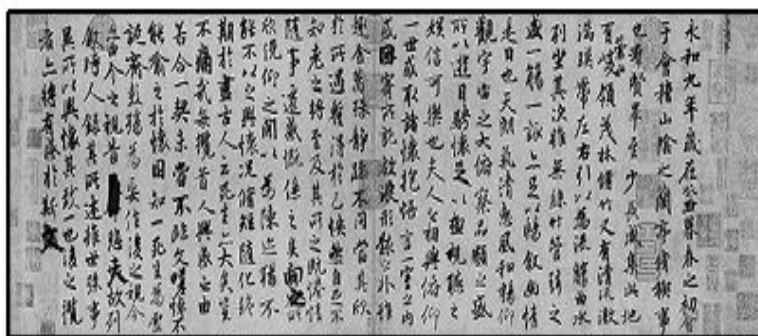 永和九年歲在癸丑暮春之初會
于會稽山陰之蘭亭脩稧事
也羣賢畢至少長咸集此地
有崇山峻領茂林脩竹又有清流激
湍映帶左右引以為流觴曲水
列坐其次雖無絲竹管弦之
盛一觴一詠亦足以暢敘幽情
是日也天朗氣清惠風和暢仰
觀宇宙之大俯察品類之盛
所以遊目騁懷足以極視聽之
娛信可樂也夫人之相與俯仰
一世或取諸懷抱悟言一室之內
或因寄所託放浪形骸之外雖
趣舍萬殊靜躁不同當其欣
於所遇蹔得於己快然自足不
知老之將至及其所之既惓情
隨事遷感慨係之矣向之所
欣俛仰之閒以為陳迹猶不
能不以之興懷況脩短隨化終
期於盡古人云死生亦大矣豈
不痛哉每攬昔人興感之由
若合一契未嘗不臨文嗟悼不
能喻之於懷固知一死生為虛
誕齊彭殤為妄作後之視今
亦由今之視昔悲夫故列
敘時人錄其所述雖世殊事
異所以興懷其致一也後之攬
者亦將有感於斯文